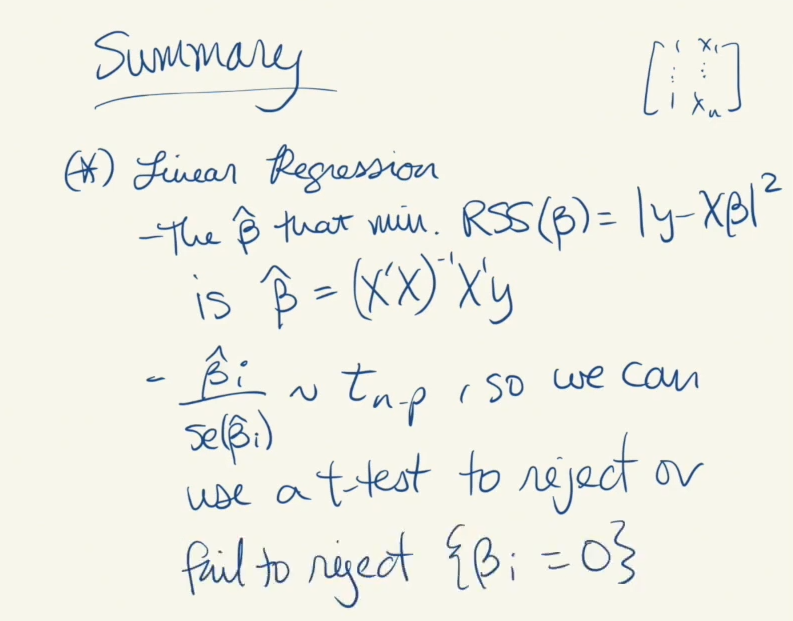 Summary
[1 x₁
⋮ ⋮
1 xₙ]
(*) Linear Regression
-The β̂ that min. RSS(β) = |y-Xβ|²
is β̂ = (X'X)⁻¹X'y
- β̂ᵢ / se(β̂ᵢ) ~ tₙ₋ₚ, so we can
use a t-test to reject or
fail to reject {βᵢ = 0}